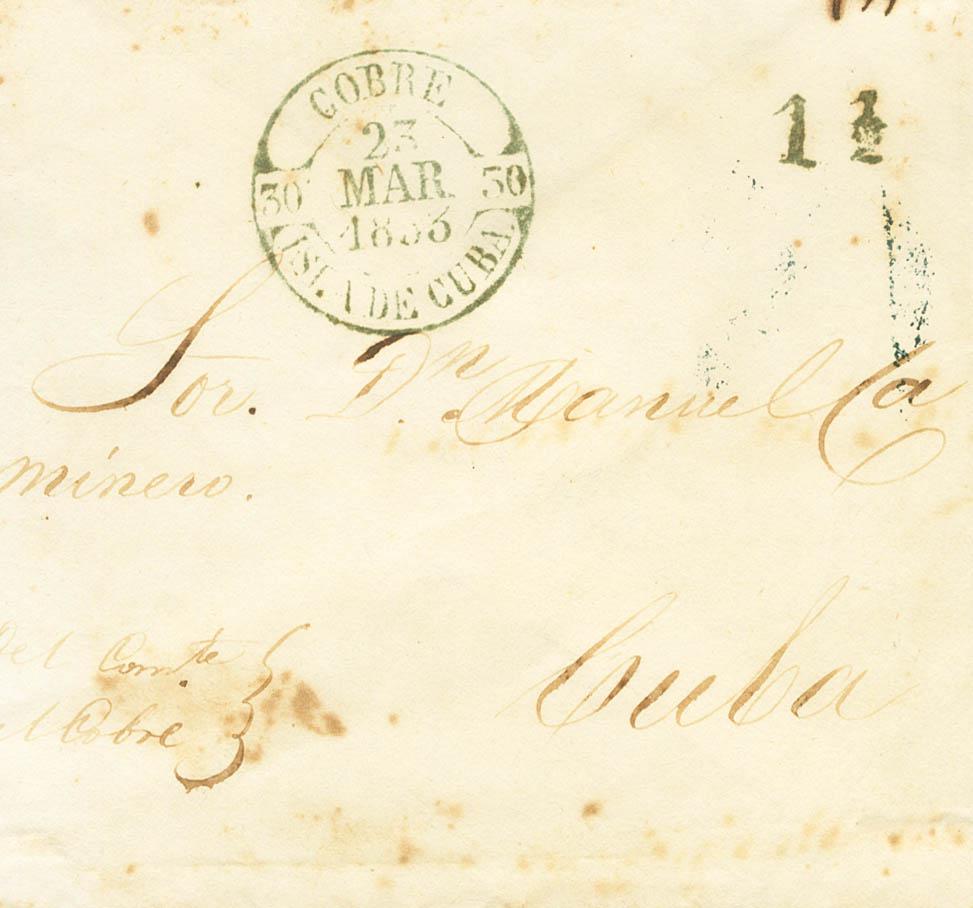 COBRE
1 ½
23
MAR
30 30
1853
ISLA DE CUBA
Sor. Dn. Manuel Ca
minero.
Del Comte
el Cobre
Cuba